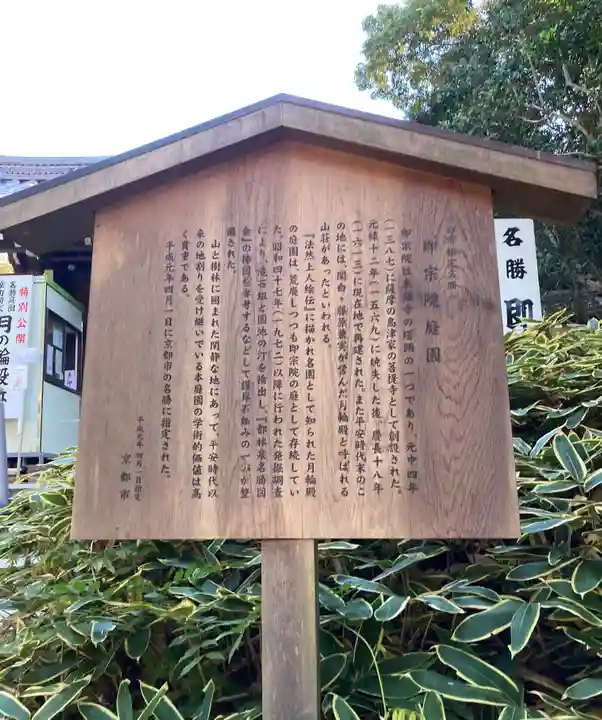 京都市指定名勝
即宗院庭園
即宗院は東福寺の塔頭の一つであり、元中四年
(一三八七)に薩摩の島津家の菩提寺として創設された。
元禄十二年(一五六九)に焼失した後、慶長十八年
(一六一三)に現在地で再建された。また平安時代末のこ
の地には、関白・藤原兼実が営んだ月輪殿と呼ばれる
山荘があったといわれる。
『法然上人絵伝』に描かれ名園として知られた月輪殿
の庭園は、荒廃しつつも即宗院の庭として存続してい
た。昭和四十七年(一九七二)以降に行われた発掘調査
により、滝石組と園池の汀を検出し、『都林泉名勝図
会』の挿図も参考
備された。
山と樹林に囲まれた閑静な地にあって、平安時代以
来の地割りを受け継いでいる本庭園の学術的価値は高
く貴重である。
平成元年四月一日に京都市の名勝に指定された。
平成元年四月一日指定
京都市
名勝 即
特別公開
名勝庭園
月の輪殿